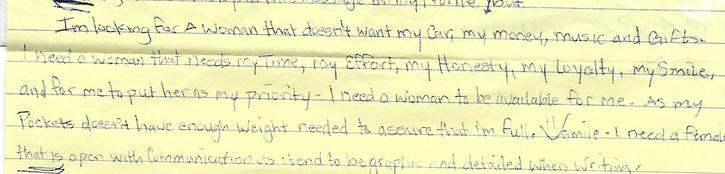 Im looking for A woman that doesn't want my Car, my money, music and Gifts.
I need a woman that needs my Time, my Effort, my Honesty, my Loyalty, my Smile,
and for me to put her as my priority - I need a woman to be available for me. As my
Pockets doesn't have enough weight needed to assure that im full. smile - I need a female
that is open with Communication as i tend to be graphic and detailed when writing.